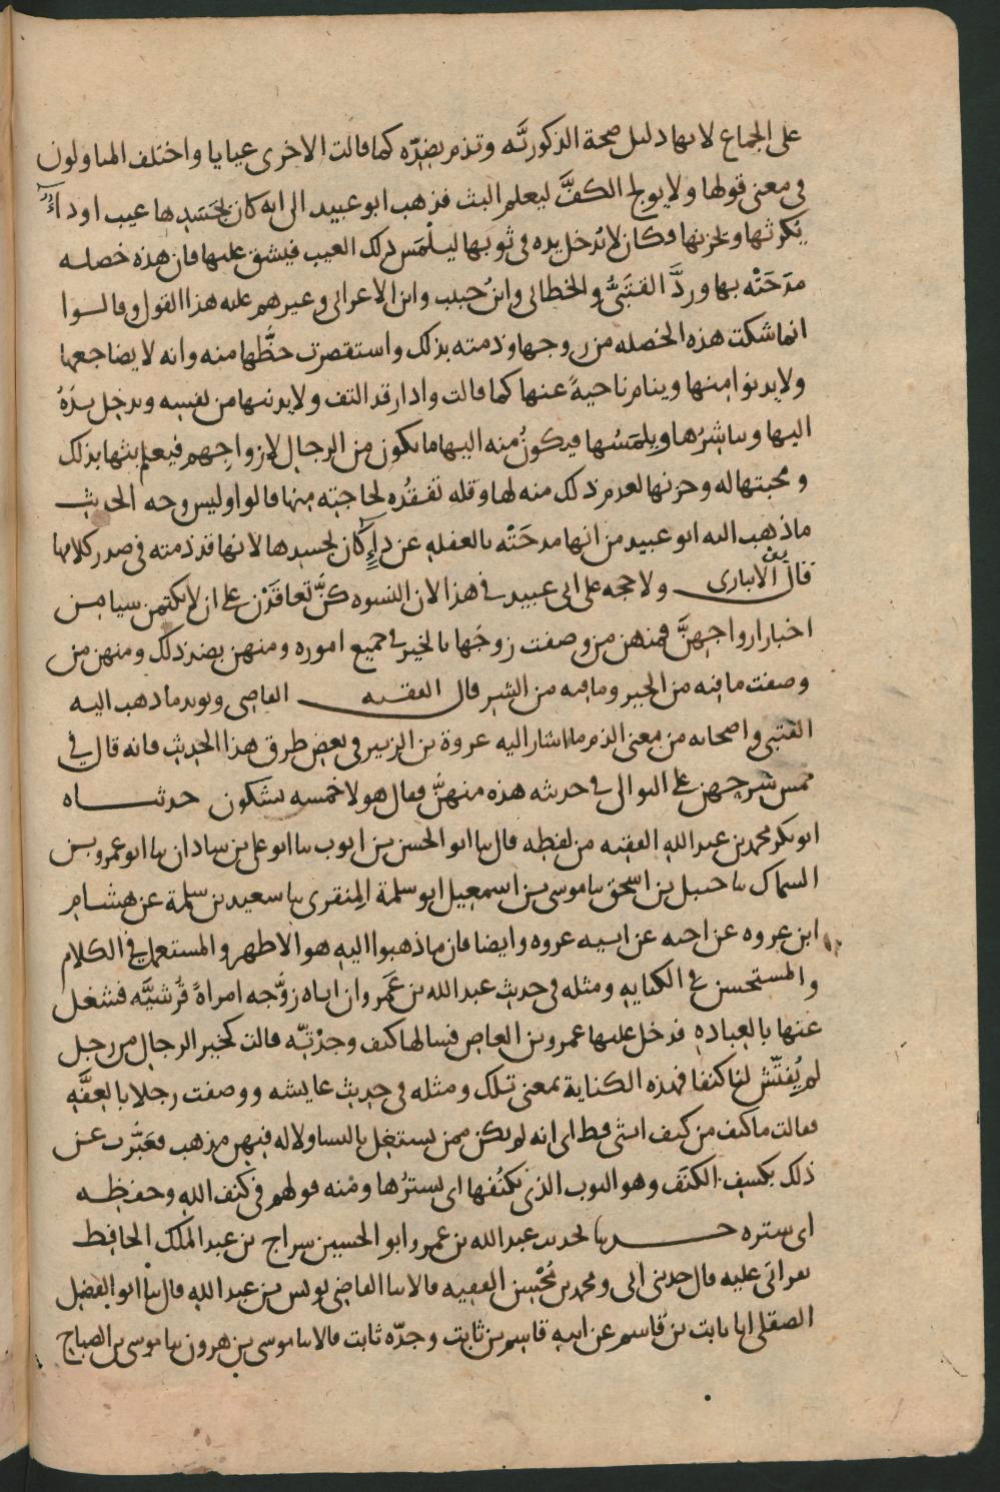 على الجماع لانها دليل صحة الذكوريَّه وتذم بضِدّه كما قالت الاخرى عيايا واختلف المتاولون
فى معنى قولها ولا يولج الكفَّ ليعلم البث فذهب ابو عبيد الى انه كان بجَسَدِها عيب او داءٌ
يُكرثها ويحزنها فكان لا يُدخل يده فى ثوبها ليلمَس ذلك العيب فيشق عليها فان هذه خصله
مدَحَتْه بها وردَّ القتَبىُّ والخطابى وابنُ حبيب وابن الاعرابى وغيرهم عليه هذا القول وقالوا
انما شكت هذه الخصله من زوجها وذمته بذلك واستقصرت حظَّها منه وانه لا يضاجعها
ولا يدنو امنها وينام ناحيةً عنها كما قالت واذا رقد التف ولا يدنيها من نفسه ويدخل يدَهُ
اليها ويباشرُها ويلمَسُها فيكونُ منه اليها ما يكون من الرجال لازواجِهم فيعلم بثها بذلك
ومحبتها له وحزنها لعدم ذلك منه لها وقله تفقدُه لحاجتِه منها قالوا وليس وجه الحديث
ما ذهب اليه ابو عبيد من انها مدحَتْه بالغفله عن داءٍ كان بجسدِها لانها قد ذمته فى صدر كلامها
قال ابن الانبارى ولا حجه على ابى عبيد فى هذا لان النسوه كنَّ تعاقَدْن على ان لا يكتمن شيا من
اخبار ازواجِهنَّ فمنهن من وصفت زوجَها بالخير فى جميع اموره ومنهن بضد ذلك ومنهن من
وصفت ما فيه من الخير وما فيه من الشر قال الفقيه القاضى ويويد ما ذهب اليه
القتبى واصحابه من معنى الذم ما اشار اليه عروة بن الزبير فى بعض طرق هذا الحديث فانه قال فى
خمس شرحهن على التوالى فى حديثه هذه منهنَّ فقال هولا خمسه يشكون حدثناه
ابو بكر محمد بن عبد الله الفقيه من لفظه قال نا ابو الحسن بن ايوب نا ابو على بن شاذان نا ابو عمرو بن
السماك نا حنبل بن اسحق نا موسى بن اسمعيل ابو سلمة المِنقرى نا سعيد بن سلمة عن هشام
ابن عروه عن اخيه عن ابيه عروه وايضا فان ما ذهبوا اليه هو الاظهر والمستعمل فى الكلام
والمستحسن فى الكنايه ومثله فى حديث عبد الله بن عَمرو ان اباه زوَّجه امراةً قُرشيَّه فشغل
عنها بالعباده فدخل عليها عمرو بن العاص فسالها كيف وجدْتِه قالت كخير الرجال من رجل
لم يُفتّش لنا كنفا فهذه الكناية بمعنى تلك ومثله فى حديث عايشه ووصفت رجلا بالعِفَّه
فقالت ما كشف من كنف انثى قط اى انه لم يكن ممن يشتغل بالنسا ولا له فيهن مذهب فعَبَّرت عن
ذلك بكشف الكنَف وهو الثوب الذى يكنُفها اى يسترُها ومنه قولهم فى كَنَف الله وحفظه
اى ستره حدثنا بحديث عبد الله بن عمرو ابو الحسين سراج بن عبد الملك الحافظ
بقراتى عليه قال حدثنى ابى ومحمد بن مُحْسن الفقيه قالا نا القاضى يونس بن عبد الله قال نا ابو الفضل
الصقلى انا ثابت بن قاسم عن ابيه قاسم بن ثابت وجدّه ثابت قالا نا موسى بن هرون نا موسى بن الصباح